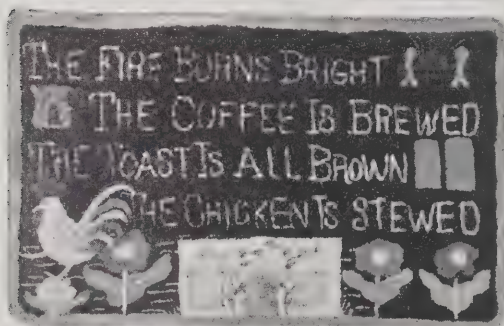 THE FIRE BURNS BRIGHT
THE COFFEE IS BREWED
THE TOAST IS ALL BROWN
THE CHICKEN IS STEWED